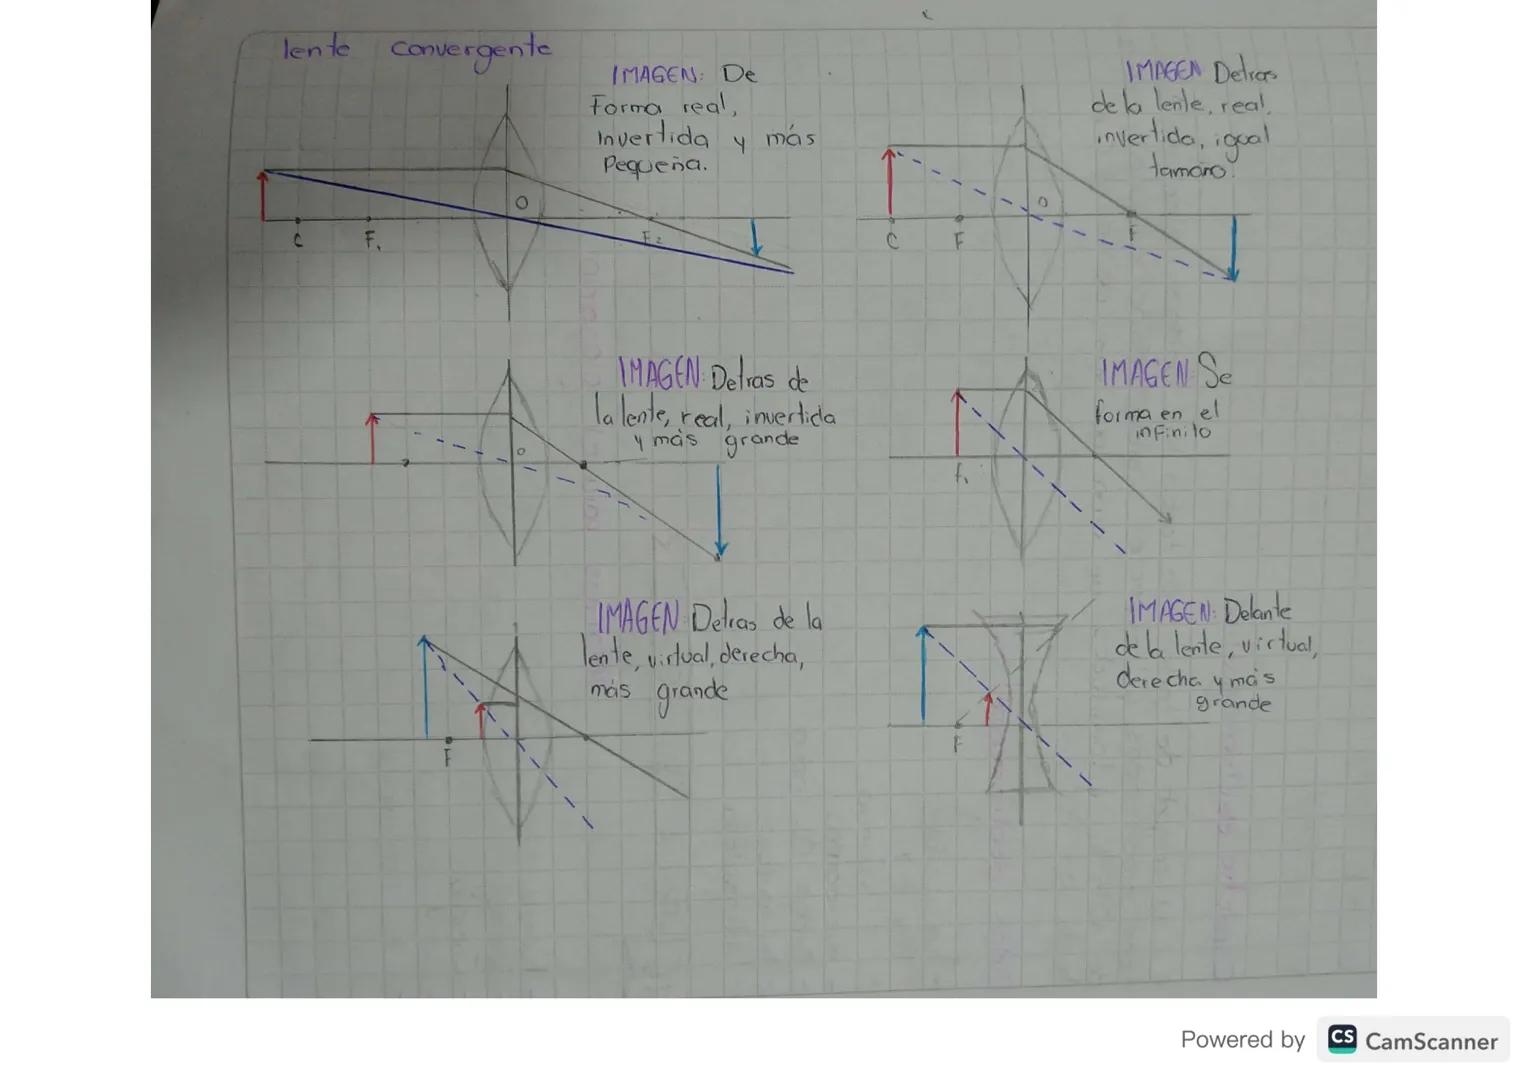 lente convergente
IMAGEN: De
Forma real,
Invertida y más
Pequeña.
O
C
F1
F2
IMAGEN Detras
de la lente, real,
invertida, igual
tamaño.
O
C
F
F
IMAGEN: Detras de
la lente, real, invertida
y más grande
O
IMAGEN Se
forma en el
infinito
f1
IMAGEN Detras de la
lente, virtual, derecha,
más grande
F
IMAGEN: Delante
de la lente, virtual,
derecha y más
grande
F
Powered by CS CamScanner